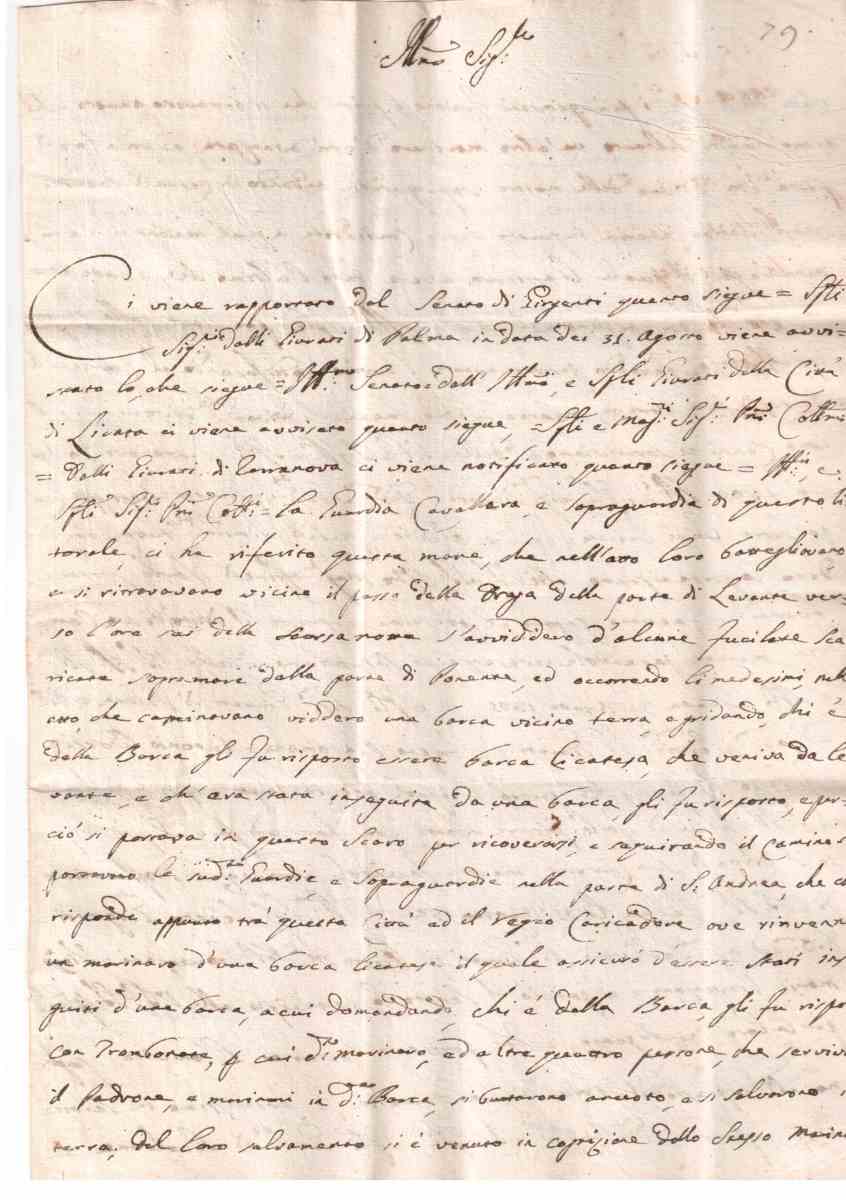 79.
Ill.mo Sig.re
Ci viene rapportato dal Senato di Girgenti quanto siegue = Sp.li
Sig.ri dalli Giurati di Palma in data dei 31. Agosto viene avvi=
sato lo, che siegue = Ill.mo Senato: dall' Ill.mi, e Sp.li Giurati della Città
di Licata ci viene avvisato quanto siegue, = Sp.li e Mag.ci Sig.ri P.ni Coll.mi
= Dalli Giurati di Terranova ci viene notificato quanto siegue = Ill.mi, e
Sp.li Sig.ri P.ni Col.mi = la Guardia Cavallara, e sopraguardia di questo li
torale, ci ha riferito questa mane, che nell'atto loro battegliavano
e si ritrovavano vicino il passo della Draja della parte di Levante ver=
so l'ore sei della scorsa notte s'avviddero d'alcune fucilate sca
ricate sopramare dalla parte di Ponente, ed occorrendo li medesimi, nell
atto, che caminavano viddero una barca vicino terra, e gridando, chi è
della Barca gli fu risposto essere barca licatese, che veniva da le
vante, e ch'era stata inseguita da una barca, gli fu risposto, e per=
ciò si portava in questo Scaro per ricoverarsi, e seguitando il Camino s
portarono le sud.te Guardie, e Sopraguardie nella parte di S. Andrea, che co
risponde appunto trà questa Città ed il Regio Caricadore ove rinvenn
un marinaro d'una barca licatese il quale assicurò d'essere stati inse
guiti d'una barca, a cui domandando, chi è dalla Barca, gli fu rispo
con Trombonate, per cui d.to marinaro, ed altre quattro persone, che servivano
il Padrone, e marinari in d.ta Barca, si buttarono a nuoto, e si salvarono i
terra, del loro salvamento si è venuto in cognizione dallo stesso Marina